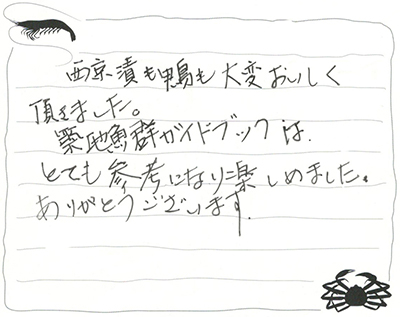 西京漬も鴨も大変おいしく
頂きました。
築地魚群ガイドブックは、
とても参考になり楽しめました。
ありがとうございます。